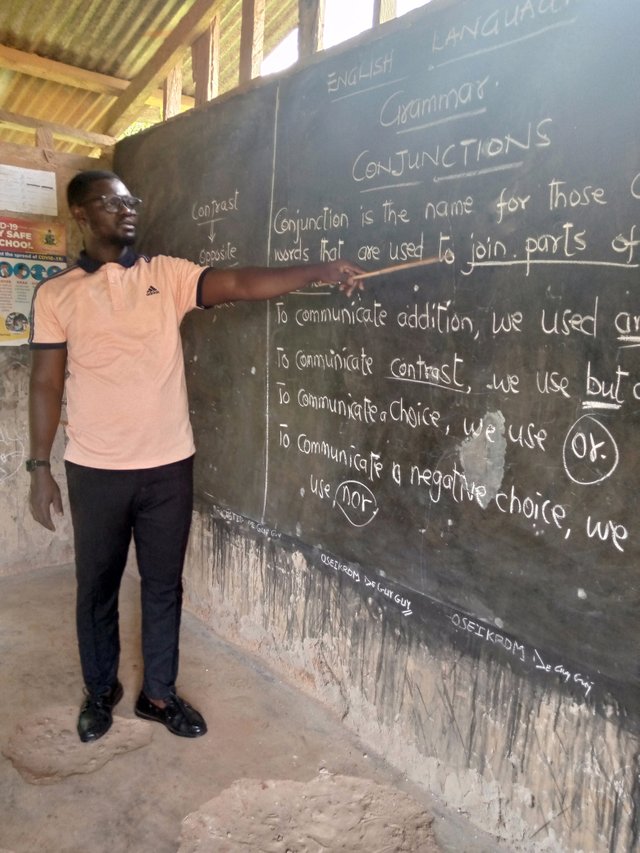 ENGLISH LANGUAG
Grammar.
CONJUNCTIONS
Contrast
Opposite
Conjunction is the name for those
words that are used to join parts of
To communicate addition, we used
To communicate contrast, we use but
To communicate a choice, we use or.
To communicate a negative choice, we
use, nor.
OSEIKROM De Guy Guy
OSEIKROM De Guy Guy
adidas
D-19
Y SAFE
SCHOOL